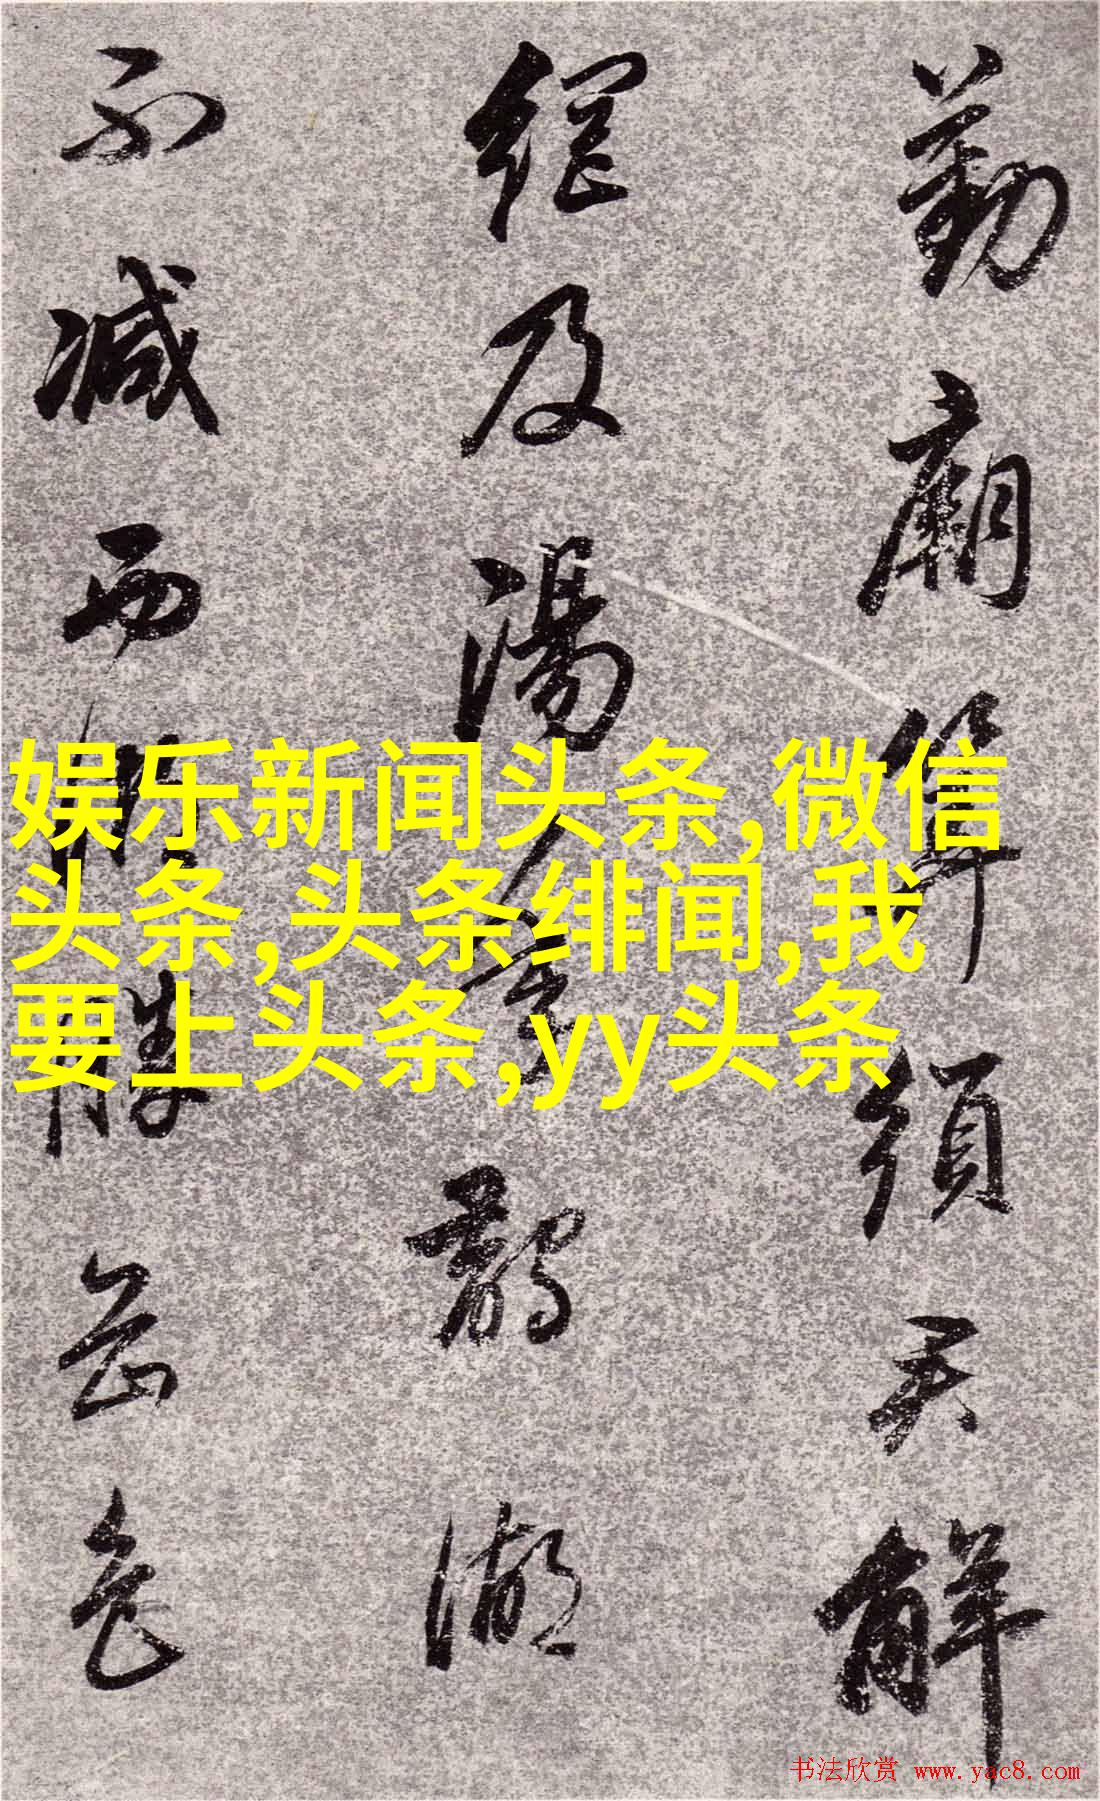 勤廟筭須君解
網及湯鵲湖
不減西湖勝岳色
娱乐新闻头条,微信
头条,头条绯闻,我
要上头条,yy头条
书法欣赏 www.yac8.com